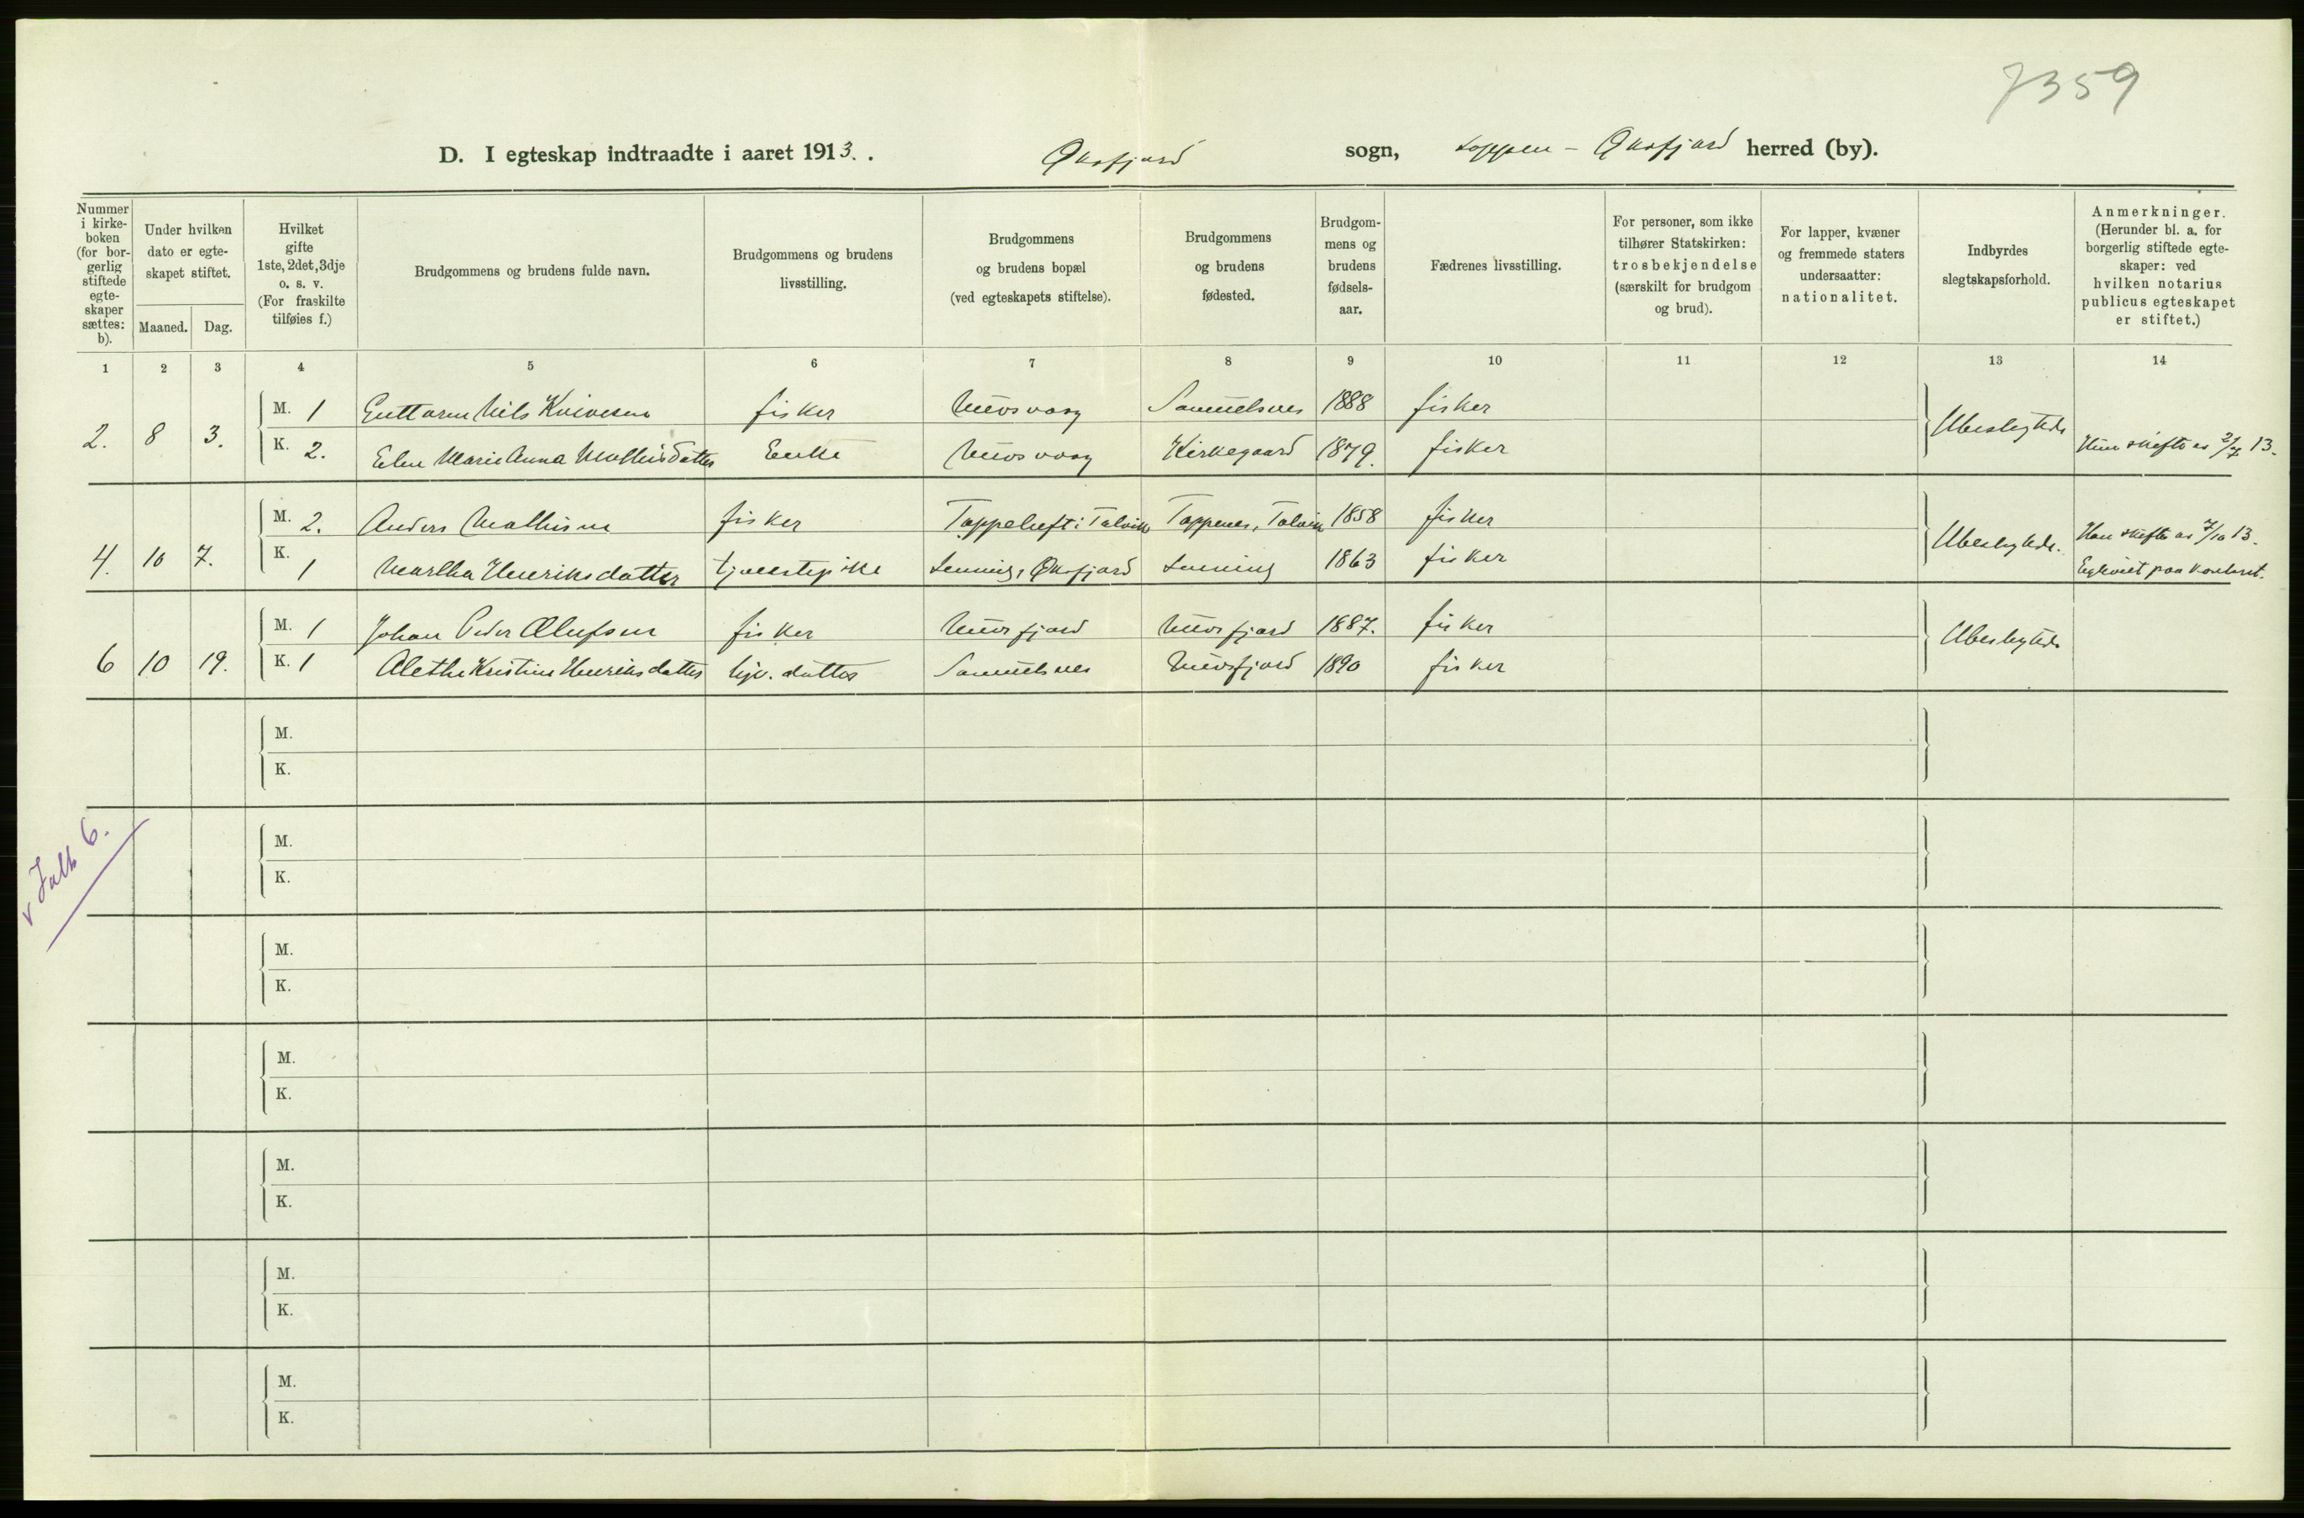 7359
D. I egteskap indtraadte i aaret 1913. . Øksfjord sogn, Loppen - Øksfjord herred (by).
Nummer i kirke-boken (for bor-gerlig stiftede egte-skaper sættes: b).
Under hvilken dato er egte-skapet stiftet.
Maaned. Dag.
Hvilket gifte 1ste, 2det, 3dje o. s. v. (For fraskilte tilføies f.)
Brudgommens og brudens fulde navn.
Brudgommens og brudens livsstilling.
Brudgommens og brudens bopæl (ved egteskapets stiftelse).
Brudgommens og brudens fødested.
Brudgom-mens og brudens fødsels-aar.
Fædrenes livsstilling.
For personer, som ikke tilhører Statskirken: trosbekjendelse (særskilt for brudgom og brud).
For lapper, kvæner og fremmede staters undersaatter: nationalitet.
Indbyrdes slegtskapsforhold.
Anmerkninger. (Herunder bl. a. for borgerlig stiftede egte-skaper: ved hvilken notarius publicus egteskapet er stiftet.)
1 2 3 4 5 6 7 8 9 10 11 12 13 14
2. 8 3. M. 1 Guttorm Nils fisker Nuvsvaag Samuelsnes 1888 fisker Ubeslegtede
K. 2. Elen Marie Anna Mathisdatter Enke Nuvsvaag Kirkegaard 1879. fisker Hun skiftet 2/7 13.
4. 10 7. M. 2. Anders Mathisen fisker Tappeluft i Talvik Tappenes, Talvik 1858 fisker Ubeslegtede. Han skiftet 7/10 13.
K. 1 Martha Henriksdatter tjenestepike Øksfjord 1863 fisker Egteviet paa kontoret.
6 10 19. M. 1 Johan Peder Olufsen fisker Nuvsfjord Nuvsfjord 1887. fisker Ubeslegtede
K. 1 Alethe Kristine Henriksdatter hjv. datter Samuelsnes Nuvsfjord 1890 fisker
M.
K.
M.
K.
v Ialt 6.
M.
K.
M.
K.
M.
K.
M.
K.
M.
K.